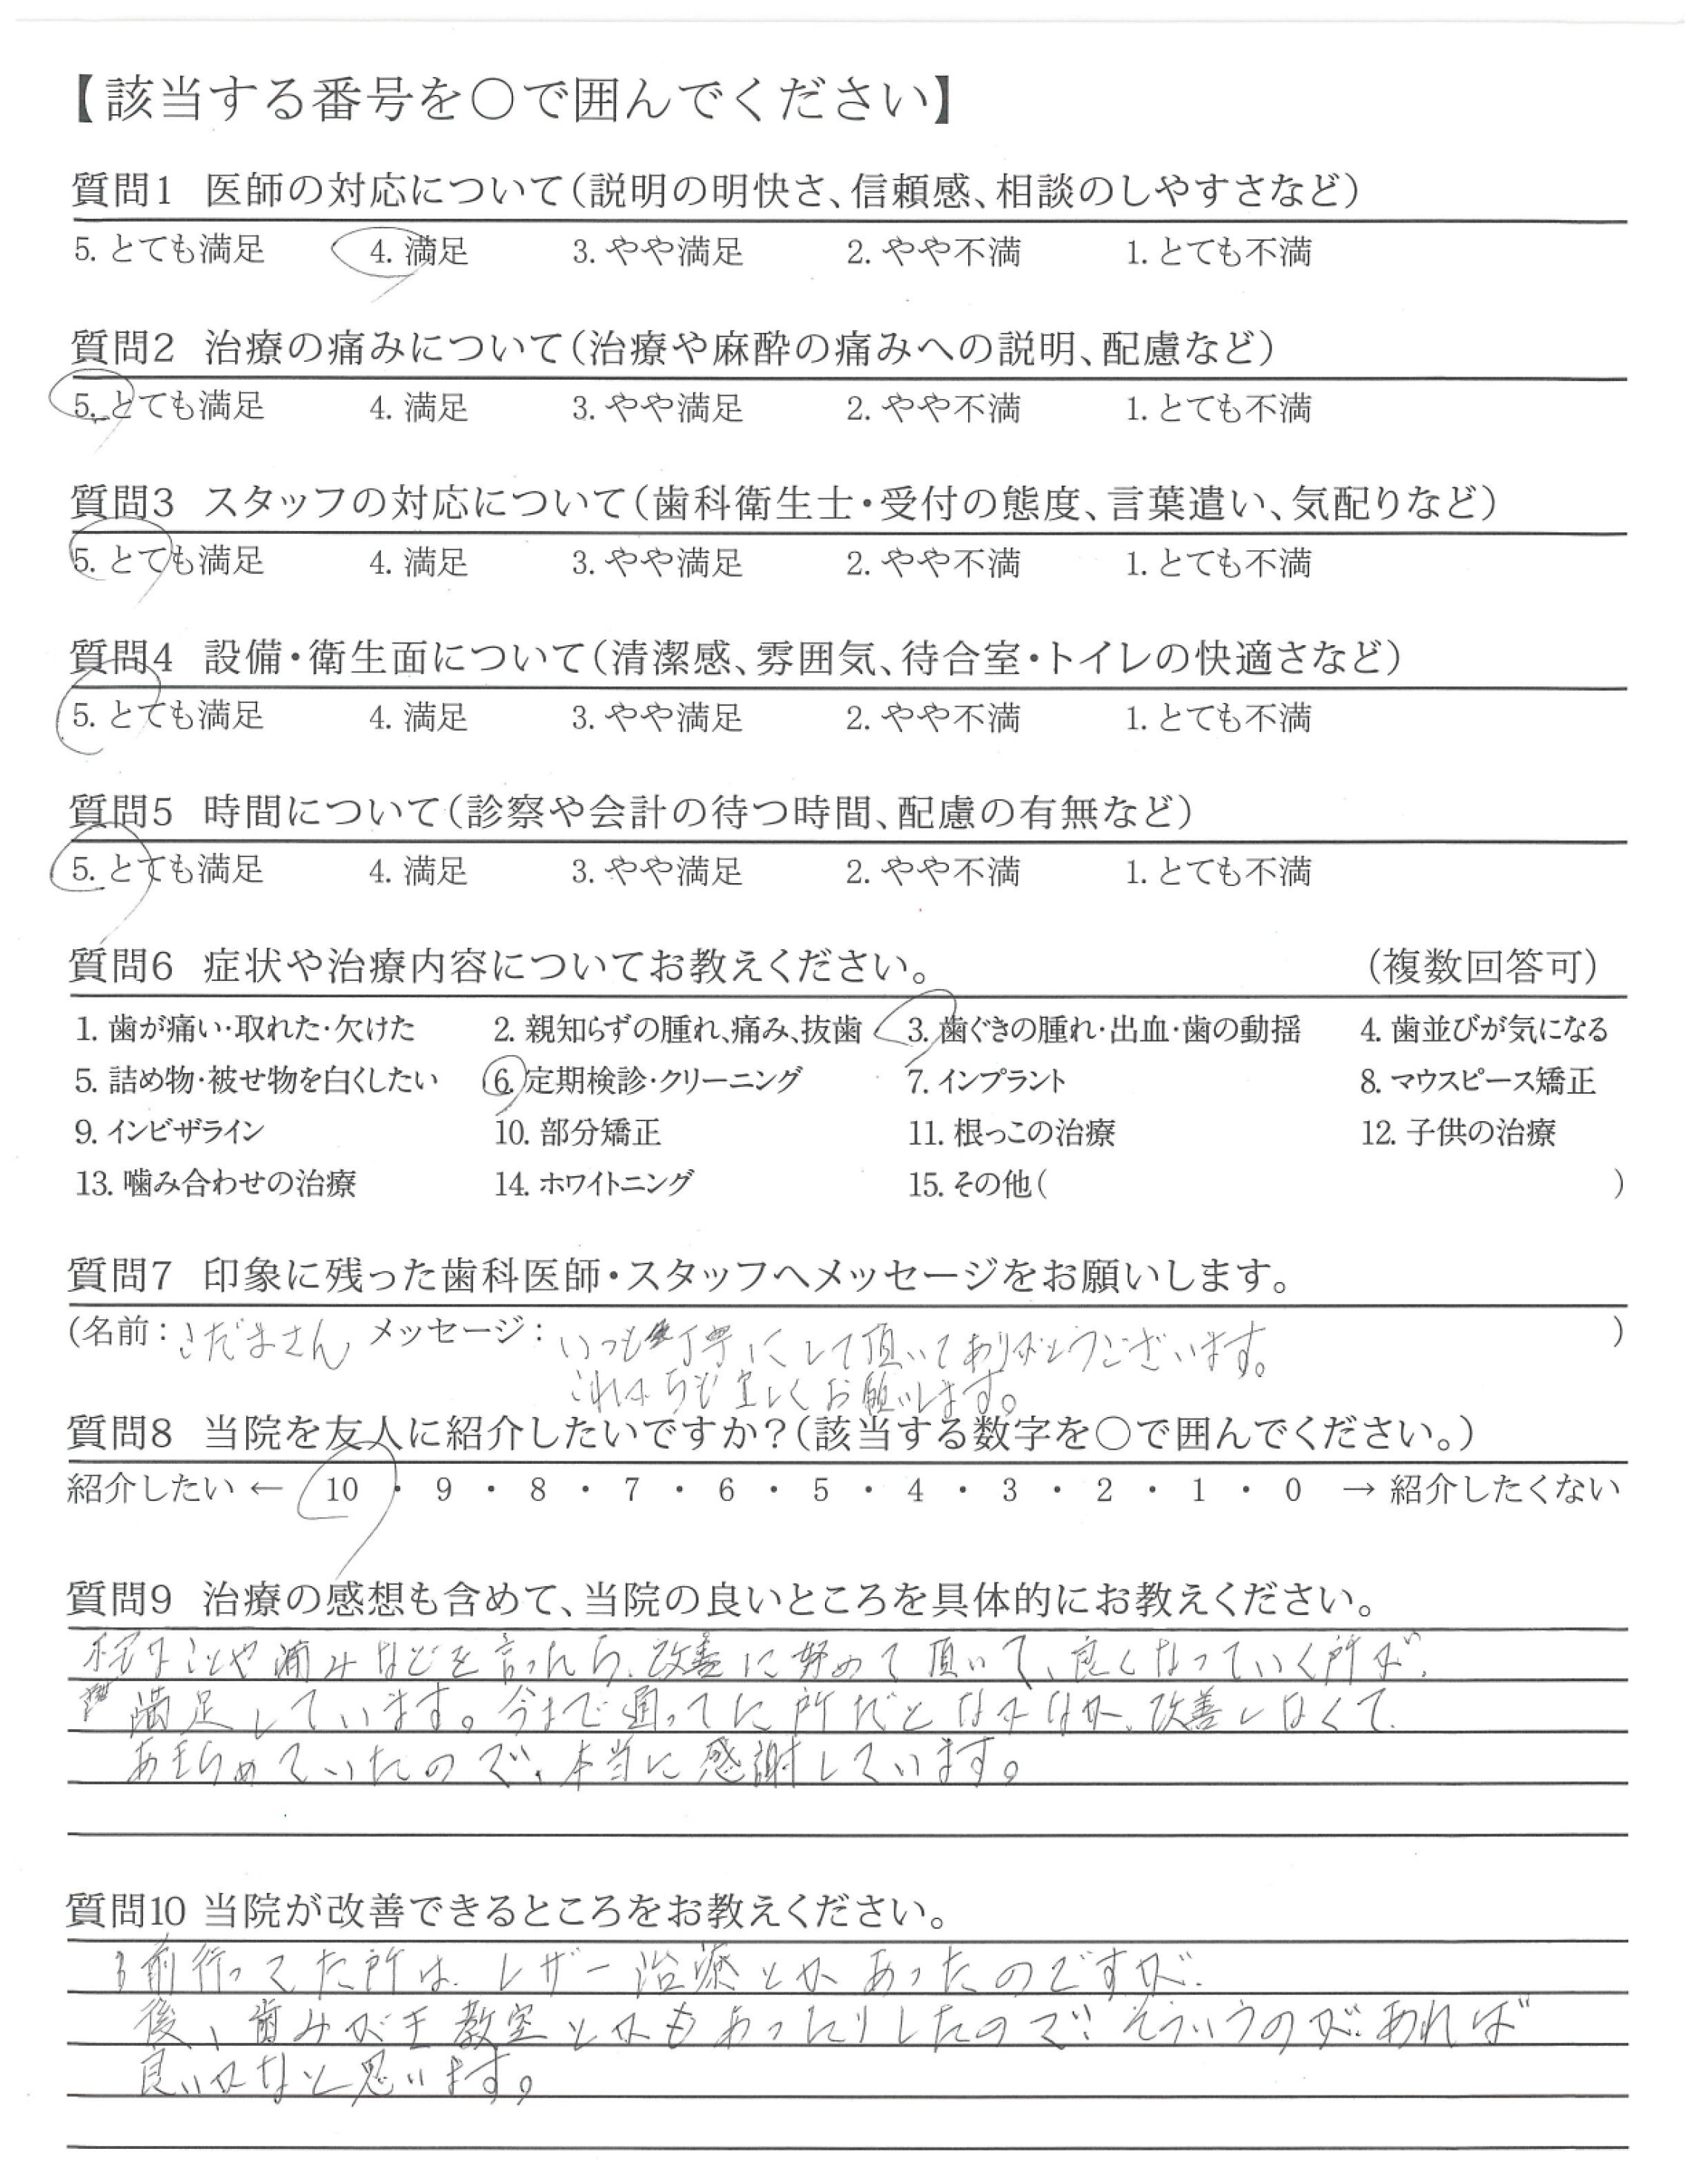 【該当する番号を○で囲んでください】
質問1 医師の対応について(説明の明快さ、信頼感、相談のしやすさなど)
5. とても満足 4. 満足 3. やや満足 2. やや不満 1. とても不満
質問2 治療の痛みについて(治療や麻酔の痛みへの説明、配慮など)
5. とても満足 4. 満足 3. やや満足 2. やや不満 1. とても不満
質問3 スタッフの対応について(歯科衛生士・受付の態度、言葉遣い、気配りなど)
5. とても満足 4. 満足 3. やや満足 2. やや不満 1. とても不満
質問4 設備・衛生面について(清潔感、雰囲気、待合室・トイレの快適さなど)
5. とても満足 4. 満足 3. やや満足 2. やや不満 1. とても不満
質問5 時間について(診察や会計の待つ時間、配慮の有無など)
5. とても満足 4. 満足 3. やや満足 2. やや不満 1. とても不満
質問6 症状や治療内容についてお教えください。 (複数回答可)
1. 歯が痛い・取れた・欠けた 2. 親知らずの腫れ、痛み、抜歯 3. 歯ぐきの腫れ・出血・歯の動揺 4. 歯並びが気になる
5. 詰め物・被せ物を白くしたい 6. 定期検診・クリーニング 7. インプラント 8. マウスピース矯正
9. インビザライン 10. 部分矯正 11. 根っこの治療 12. 子供の治療
13. 噛み合わせの治療 14. ホワイトニング 15. その他( )
質問7 印象に残った歯科医師・スタッフへメッセージをお願いします。
(名前:こだまさん メッセージ:いつも丁寧にして頂いてありがとうございます。 )
これからも宜しくお願いします。
質問8 当院を友人に紹介したいですか?(該当する数字を○で囲んでください。)
紹介したい ← 10 ・ 9 ・ 8 ・ 7 ・ 6 ・ 5 ・ 4 ・ 3 ・ 2 ・ 1 ・ 0 → 紹介したくない
質問9 治療の感想も含めて、当院の良いところを具体的にお教えください。
なことや痛みなどを言ったら、改善に努めて頂いて、良くなっていく所が、
満足しています。今まで通ってた所だとなかなか、改善しなくて
あきらめていたので、本当に感謝しています。
質問10 当院が改善できるところをお教えください。
前行ってた所は、レザー治療とかあったのですが、
後、歯みがき教室とかもあったりしたので、そういうのが、あれば
良いかなと思います。